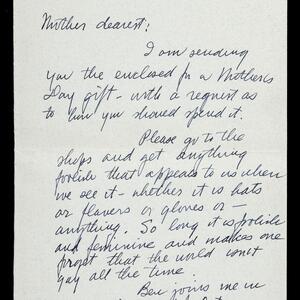 Mother dearest:
I am sending
you the enclosed for a Mother's
Day gift - with a request as
to how you should spend it.
Please go to the
shops and get anything
foolish that appeals to us when
we see it - whether it is hats
or flowers or gloves or -
anything. So long it is foolish
and feminine and makes one
forget that the world isn't
gay all the time.
Ben joins me in